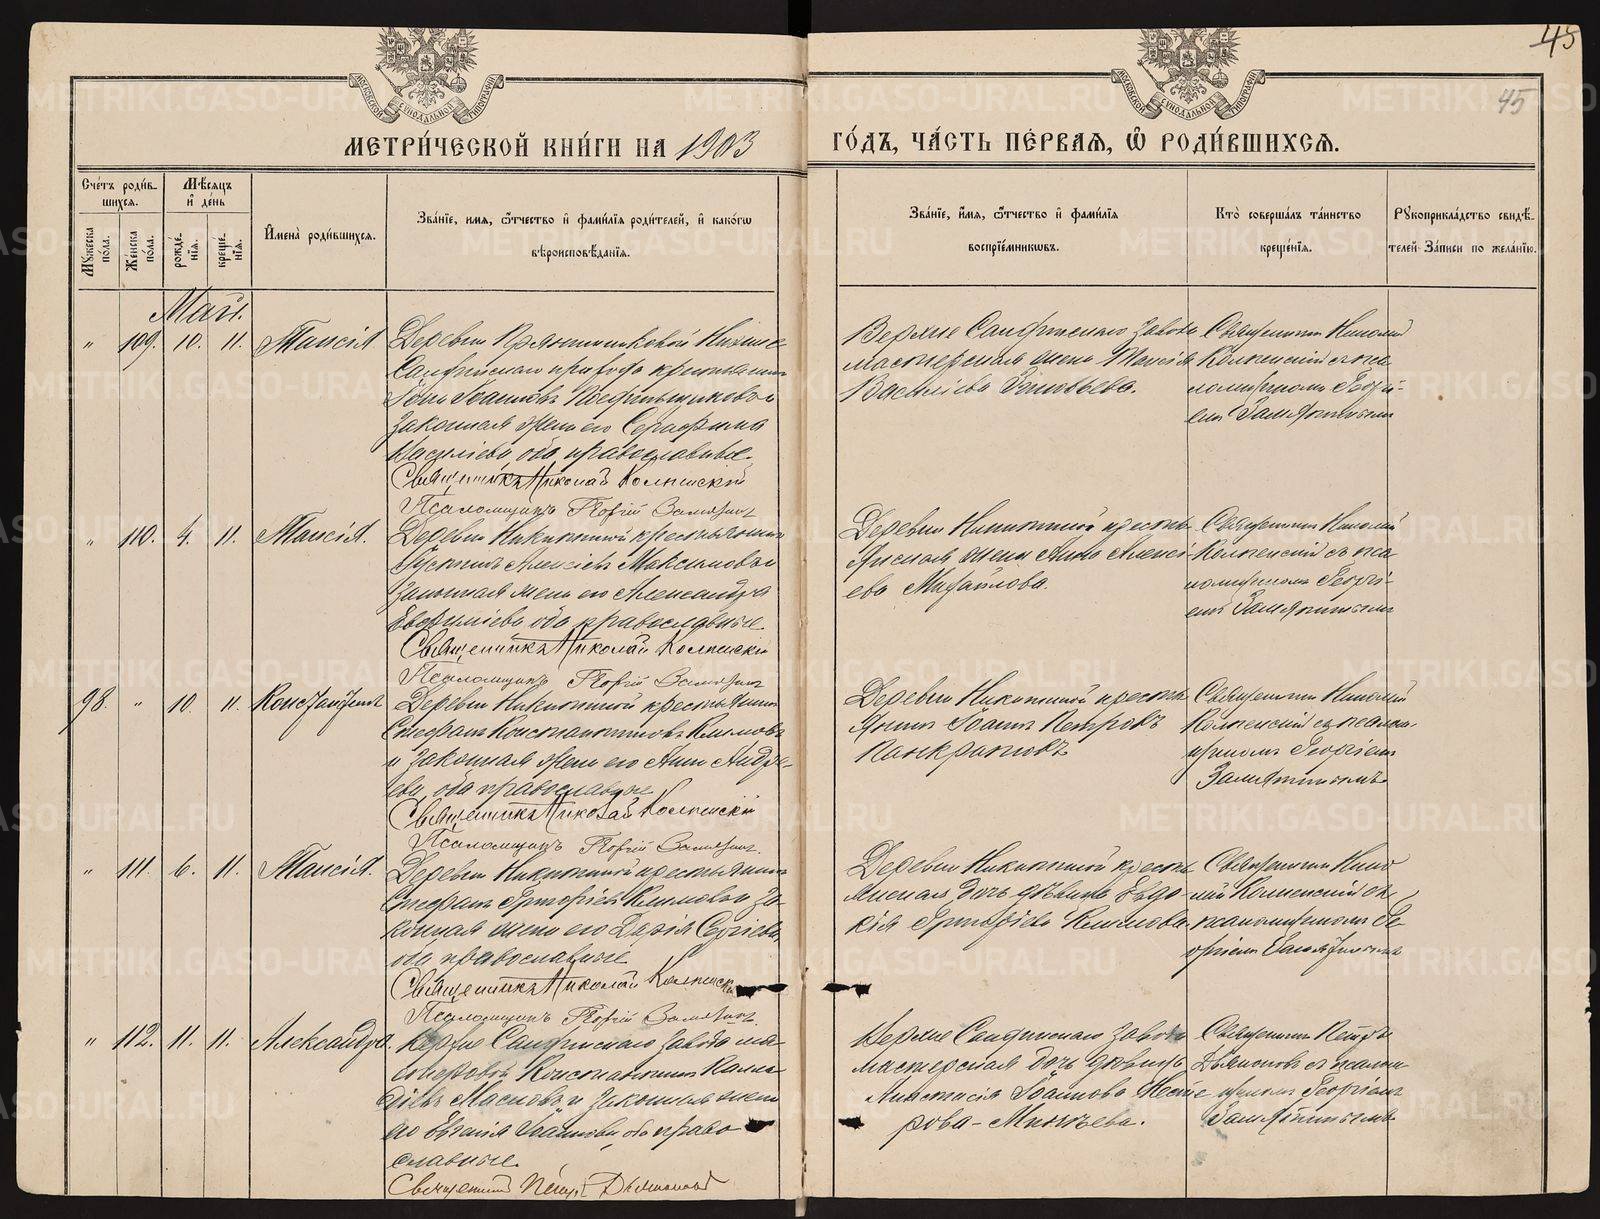 45
45
МЕТРИ́ЧЕСКОЙ КНИ́ГИ НА 1903 ГО́ДЪ, ЧА́СТЬ ПЕ́РВАѦ, Ѡ҆ РОДИ́ВШИХСѦ.
Сче́тъ роди́в-
шихсѧ.
Мꙋ́жеска по́ла.
Же́нска по́ла.
Мѣ́сѧцъ
и҆ де́нь
рожде́-нїѧ.
креще́-нїѧ.
И҆мена̀ роди́вшихсѧ.
Зва́нїе, и҆мѧ, ѻ҆́тчество и҆ фами́лїѧ роди́телей, и҆ како́гѡ
вѣроисповѣ́данїѧ.
Зва́нїе, и҆́мѧ, ѻ҆́тчество и҆ фами́лїѧ
воспрїе́мникѡвъ.
Кто̀ соверша́лъ та́инство
креще́нїѧ.
Рꙋкоприкла́дство свидѣ́-
телей за́писи по жела́нїю.
Май.
" 109. 10. 11. Таисія
Деревни
Нижне
Саифтскаго прихода крестьянинъ
Іоаннъ Іоанновъ
законная жена его Серафима
Василіева оба православные.
Священникъ Николай Колпенскій
Псаломщикъ Георгій Замятинъ
Верхне Завода
мастерская жена Таисія
Василіева Зиновьева.
Священникъ Николай
Колпенскій съ пса
ломщикомъ Георгі-
емъ Замятинымъ
" 110. 4. 11. Таисія.
Деревни Никитиной крестьянинъ
Алексіевъ Максимовъ и
законная жена его Александра
Евфиміева оба православные.
Священникъ Николай Колпенскій
Псаломщикъ Георгій Замятинъ
Деревни Никитиной крестья
янская жена Анна Алексі
ева Михайлова.
Священникъ Николай
Колпенскій съ пса
ломщикомъ Георгі-
емъ Замятинымъ
98. " 10. 11. Константинъ
Деревни Никитиной крестьянинъ
Стефанъ Константиновъ Климовъ
и законная жена его Анна Андре-
ева, оба православные
Священникъ Николай Колпенскій
Псаломщикъ Георгій Замятинъ.
Деревни Никитиной кресть
янинъ Іоаннъ Петровъ
Панкратовъ
Священникъ Николай
Колпенскій съ псалом
щикомъ Георгіемъ
Замятинымъ
" 111. 6. 11. Таисія.
Деревни Никитиной крестьянинъ
Стефанъ Григоріевъ Климовъ и за-
конная жена его Дарія Сергіева,
оба православные
Священникъ Николай Колпенскій
Псаломщикъ Георгій Замятинъ.
Деревни Никитиной кресть
янская дочь дѣвица Евдо
кія Григоріева Климова
Священникъ Нико
лай Колпенскій съ
псаломщикомъ Ге
оргіемъ Замятинымъ
" 112. 11. 11. Александра.
Верхне Завода ма
стеровой Константинъ
Масловъ и законная жена
его Евгенія Іоаннова, оба право
славные.
Священникъ Петръ
Верхне Завода
мастерская дочь дѣвица
Анастасія Іоаннова Несте
рова-
Священникъ Петръ
съ псалом
щикомъ Георгіемъ
Замятинымъ
METRIKI.GASO-URAL.RU